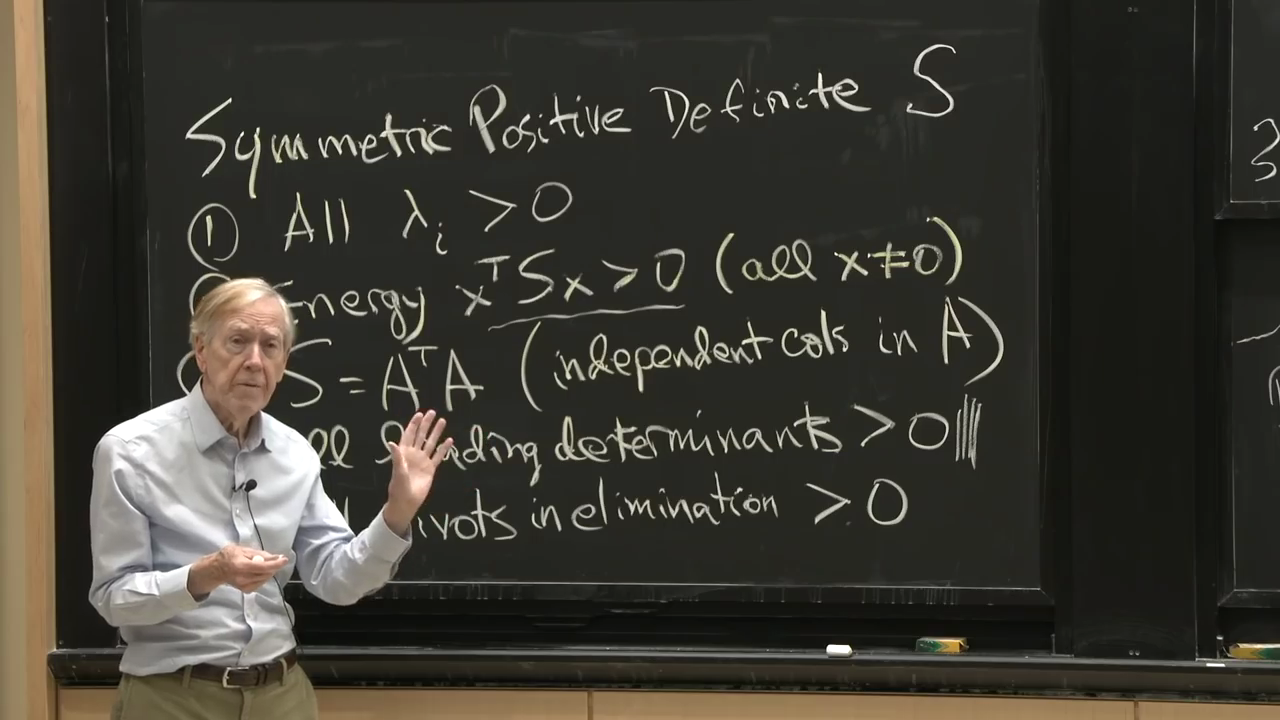 Symmetric Positive Definite S
① All λᵢ > 0
Energy xᵀSx > 0 (all x ≠ 0)
S = AᵀA (independent cols in A)
determinants > 0
in elimination > 0
3